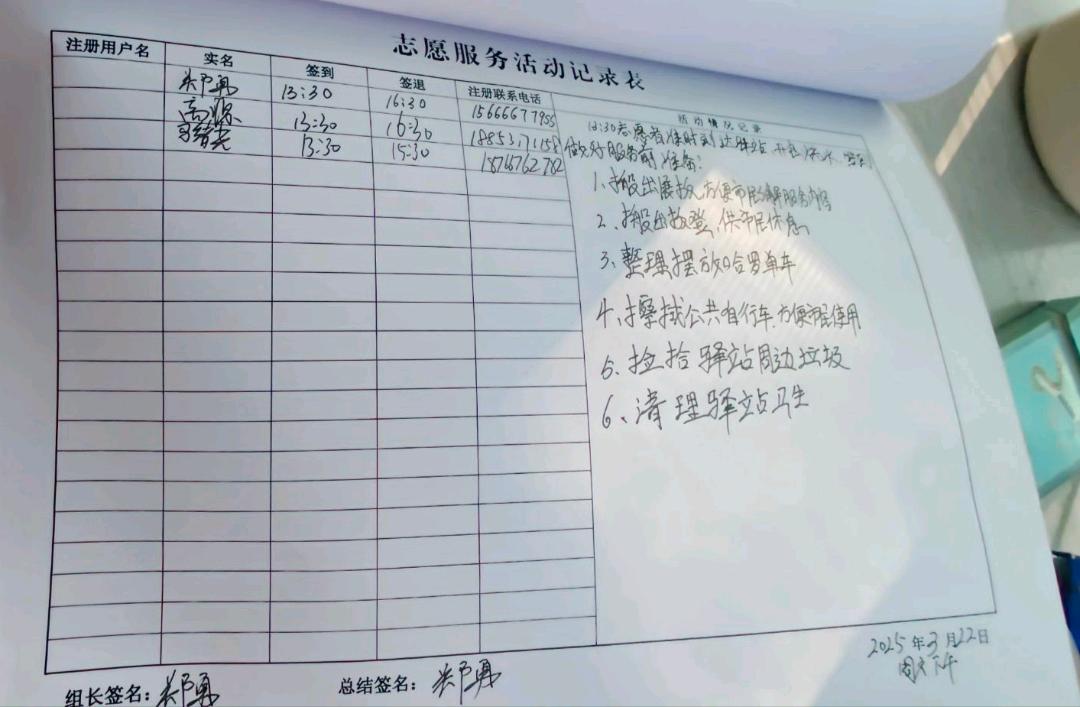 志愿服务活动记录表
注册用户名 实名 签到 签退 注册联系电话 活动情况记录
郑勇 13:30 16:30 15666677955
高源 13:30 16:30 18853171158
13:30 15:30 18766762702
13:30志愿者准时到达驿站
做好服务前准备:
1、搬出展板,方便市民了解服务内容
2、搬出板凳,供市民休息
3、整理摆放哈罗单车
4、擦拭公共自行车,方便市民使用
5、捡拾驿站周边垃圾
6、清理驿站卫生
2025年3月22日
周六下午
组长签名:郑勇 总结签名:郑勇